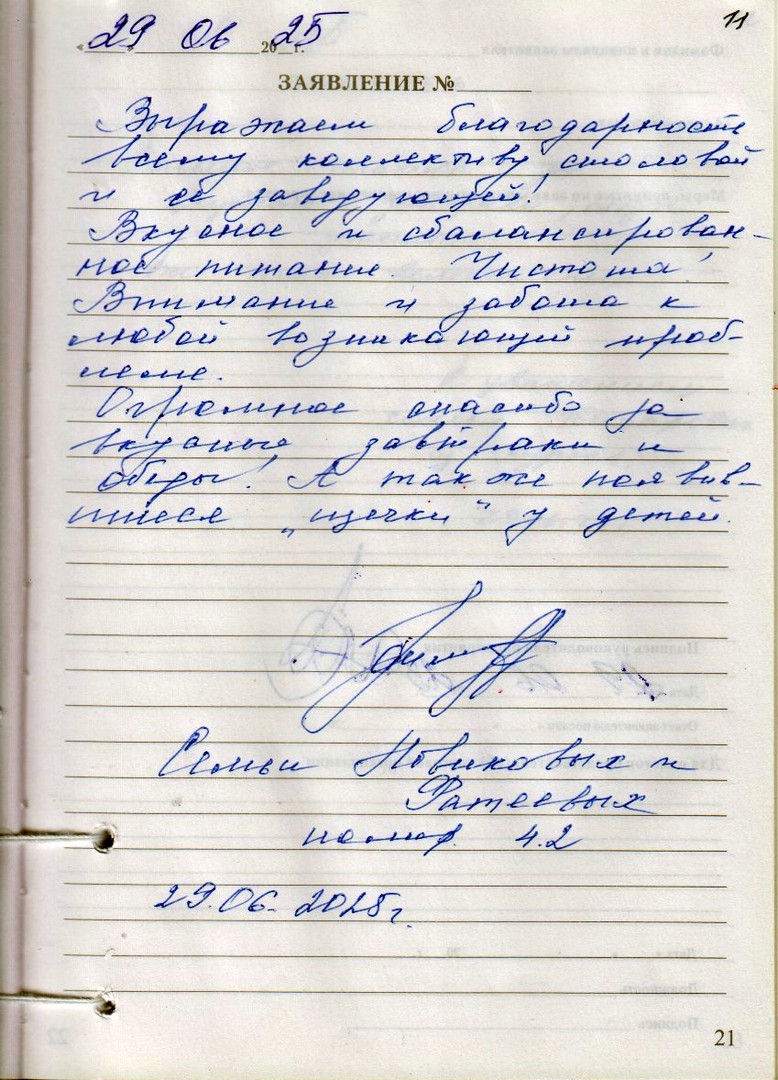 11
« 29 » 06 20 25 г.
ЗАЯВЛЕНИЕ №
Выражаем благодарность
всему коллективу столовой
и её заведующей!
Вкусное и сбалансирован-
ное питание. Чистота!
Внимание и забота к
любой возникающей проб-
леме.
Огромное спасибо за
вкусные завтраки и
обеды! А также появив-
шиеся „щечки“ у детей.
Семьи Новиковых и
Фатеевых
номер. 4.2
29.06.2025г.
21